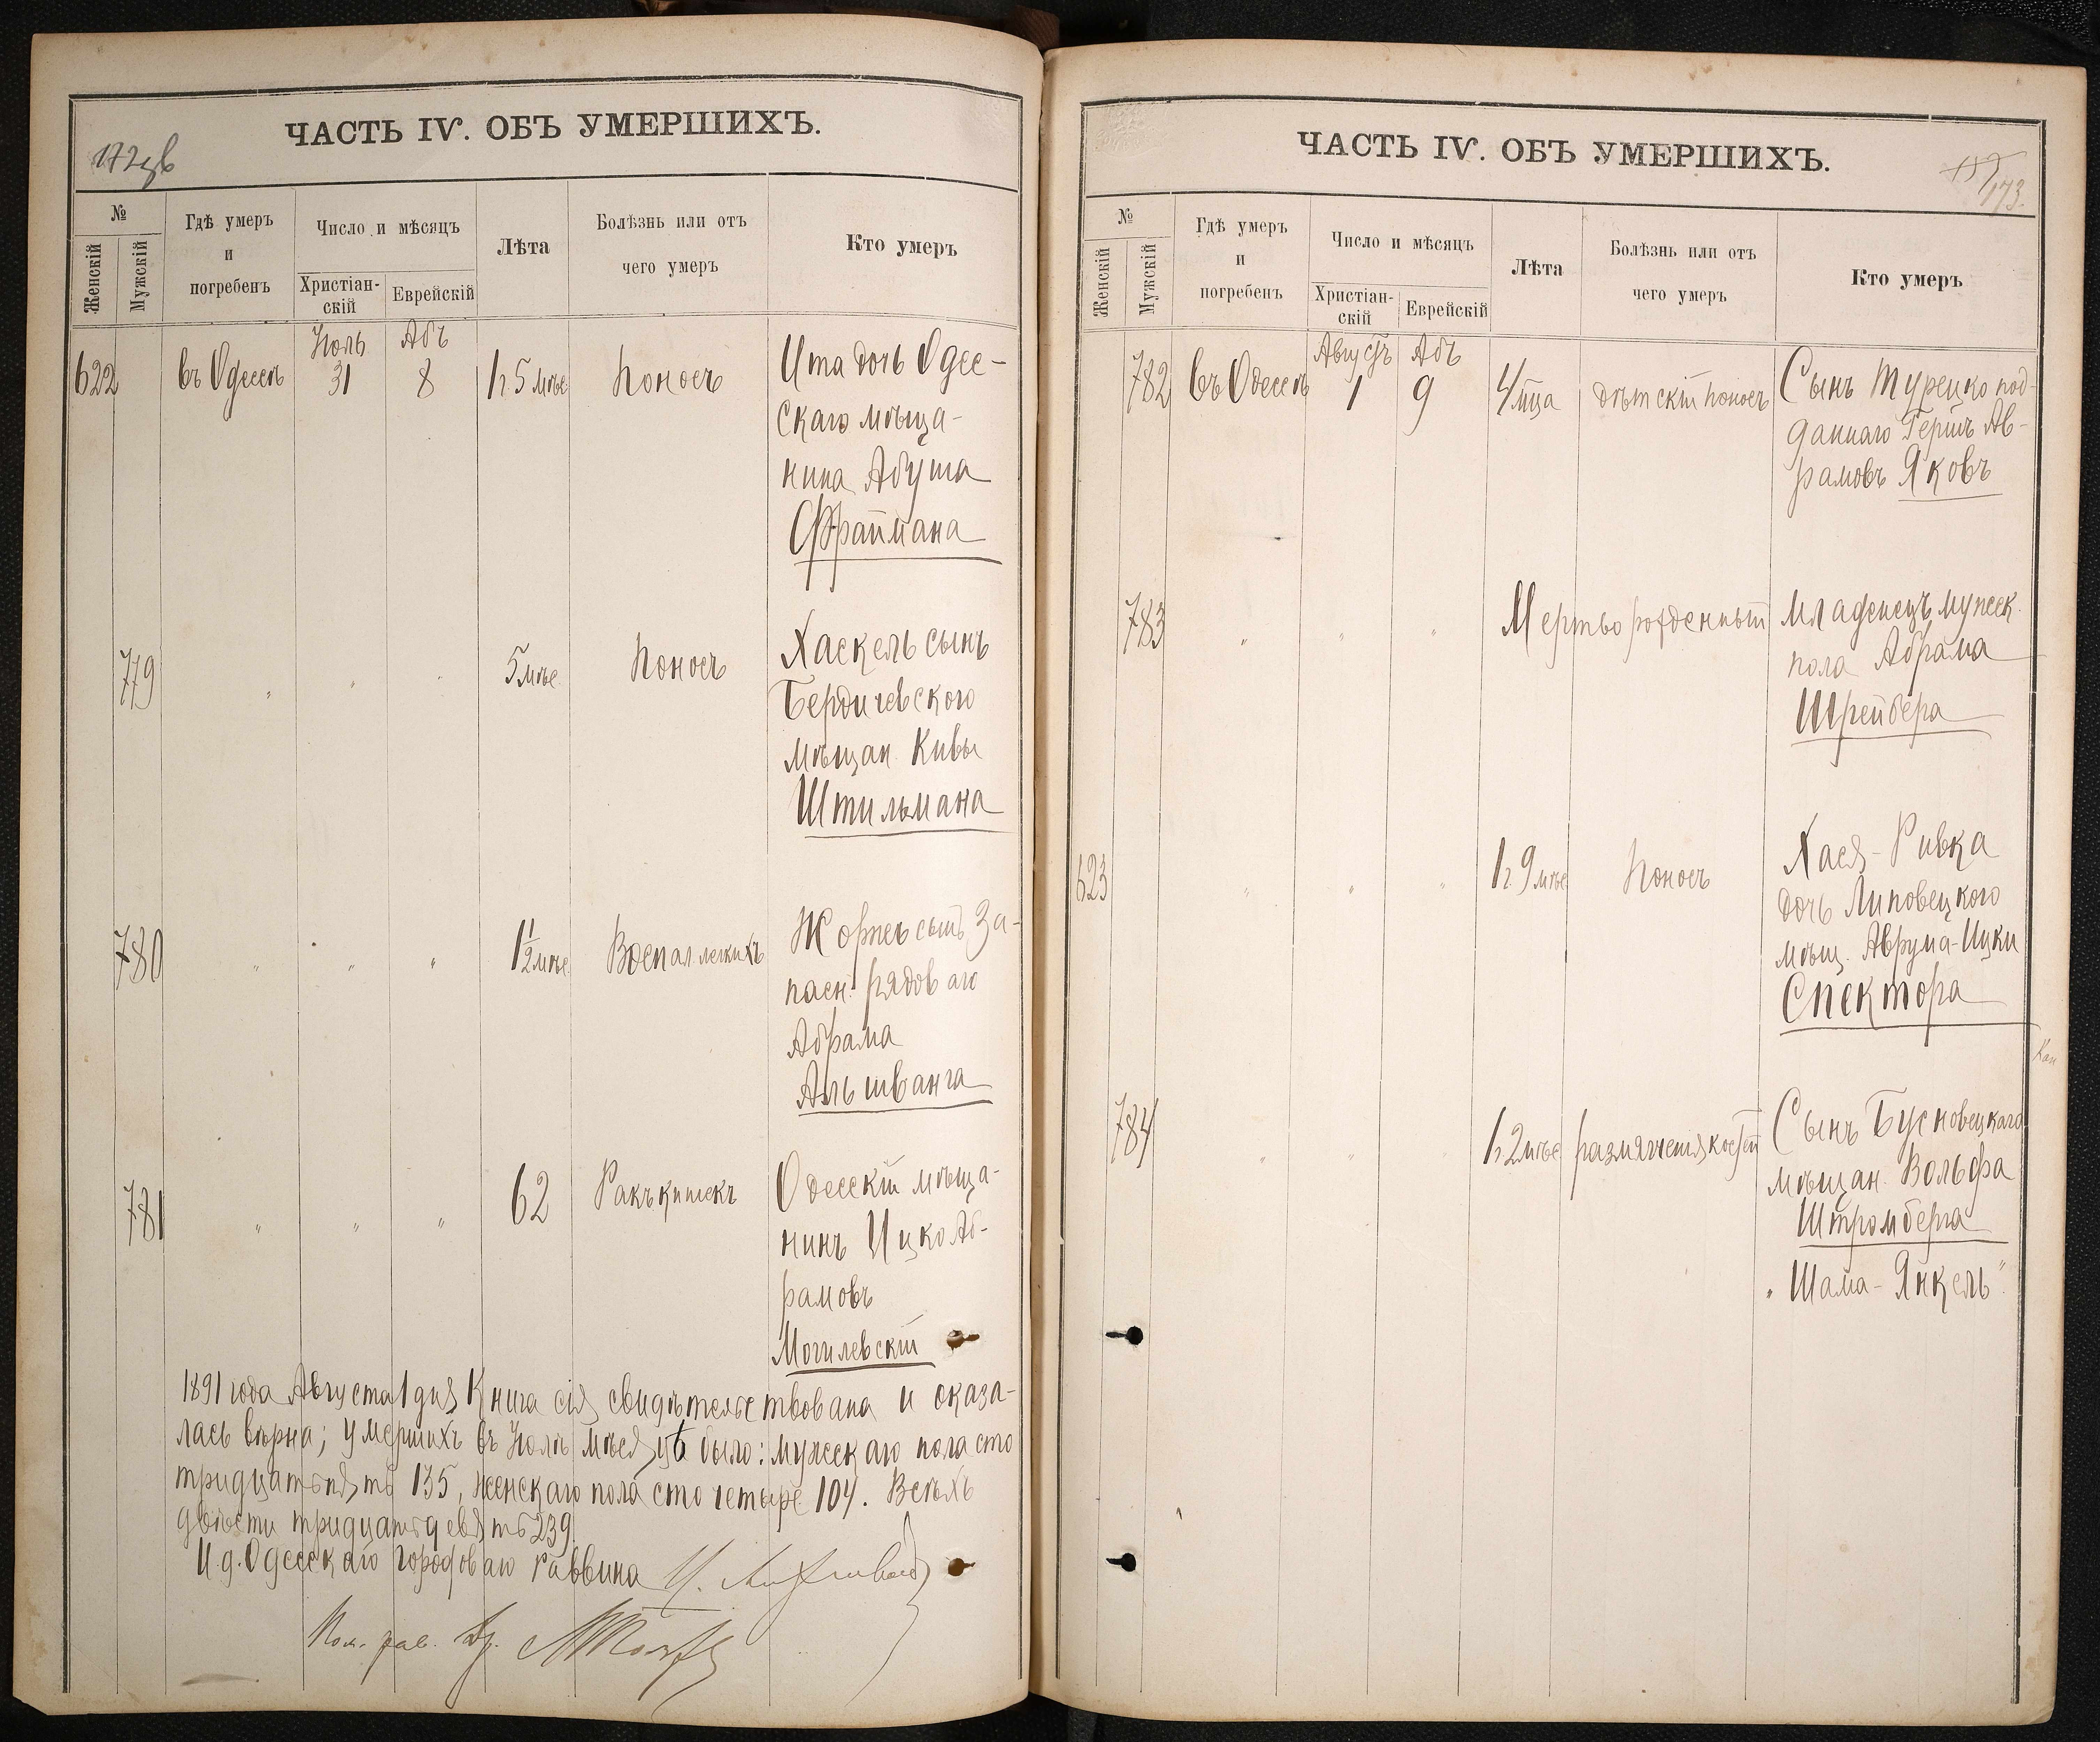 ЧАСТЬ IV. ОБЪ УМЕРШИХЪ.
172
№
Женскій
Мужскій
Гдѣ умеръ
и
погребенъ
Число и мѣсяцъ
Христіан-
скій
Еврейскій
Лѣта
Болѣзнь или отъ
чего умеръ
Кто умеръ
Іюль Абъ
622 въ Одессѣ 31 8 1 г. 5 мѣс Поносъ Ита дочь Одес-
скаго мѣща-
нина Абуша
Фраймана
779 " " " 5 мѣс. Поносъ Хаскель сынъ
Бердичевского
мѣщан. Кивы
Штильмана
780 " " " 1 1/2 мѣс. Воспал легкихъ сынъ За-
пасн. рядоваго
Абрама
Альшванга
781 " " " 62 Ракъ кишекъ Одесскій мѣща-
нинъ Ицко Аб-
рамовъ
Могилевскій
1891 года Августа 1 дня Книга сія свидѣтельствована и оказа-
лась вѣрна; умершихъ въ Іюлѣ мѣсяцѣ было: мужскаго пола сто
тридцать пять 135, женскаго пола сто четыре 104. Всѣхъ
двѣсти тридцать девять 239.
И.д. Одесскаго городоваго раввина
Пом. рав. Др.
ЧАСТЬ IV. ОБЪ УМЕРШИХЪ.
173.
№
Женскій
Мужскій
Гдѣ умеръ
и
погребенъ
Число и мѣсяцъ
Христіан-
скій
Еврейскій
Лѣта
Болѣзнь или отъ
чего умеръ
Кто умеръ
Августъ Абъ
782 въ Одессѣ 1 9 4 мца дѣтскій поносъ Сынъ Турецко под-
даннаго Гершъ Ав-
рамовъ Яковъ
783 " " " Мертворожденный младенецъ мужск.
пола Абрама
Шрейбера
623 " " " 1 г. 9 мѣс. Поносъ Хася-Ривка
дочь Липовецкого
мѣщ. Аврума-Ицки
Спектора
784 " " " 1 г. 2 мѣс размягченія костей Сынъ Бусновецкаго
мѣщан. Вольфа
Штромберга
"Шама-Янкель"